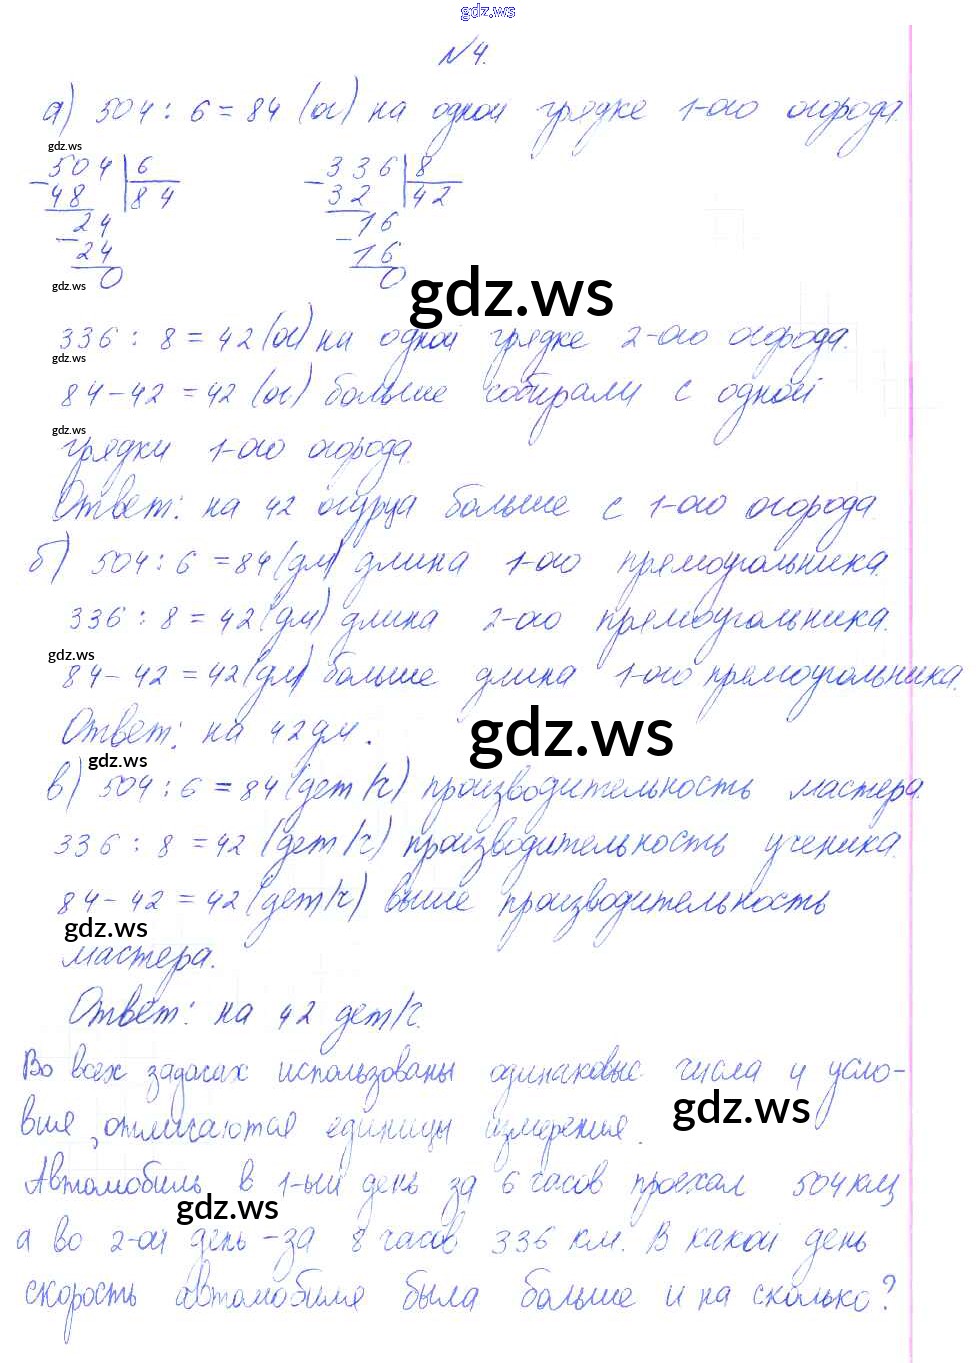 gdz.ws
№4.
а) 504 : 6 = 84 (ог) на одной грядке 1-ого огорода.
gdz.ws
504 | 6     336 | 8
48 | 84     32 | 42
24     16
24     16
0     0
gdz.ws
gdz.ws
336 : 8 = 42 (ог) на одной грядке 2-ого огорода.
gdz.ws
84 - 42 = 42 (ог) больше собирали с одной
gdz.ws
грядки 1-ого огорода.
Ответ: на 42 огурца больше с 1-ого огорода.
б) 504 : 6 = 84 (дм) длина 1-ого прямоугольника.
336 : 8 = 42 (дм) длина 2-ого прямоугольника.
gdz.ws
84 - 42 = 42 (дм) больше длина 1-ого прямоугольника.
Ответ: на 42 дм.
gdz.ws
gdz.ws
в) 504 : 6 = 84 (дет/ч) производительность мастера.
336 : 8 = 42 (дет/ч) производительность ученика.
84 - 42 = 42 (дет/ч) выше производительность
gdz.ws
мастера.
Ответ: на 42 дет/ч.
Во всех задачах использованы одинаковые числа и усло-
gdz.ws
вия, отличаются единицы измерения.
Автомобиль в 1-ый день за 6 часов проехал 504 км,
gdz.ws
а во 2-ой день - за 8 часов 336 км. В какой день
скорость автомобиля была больше и на сколько?